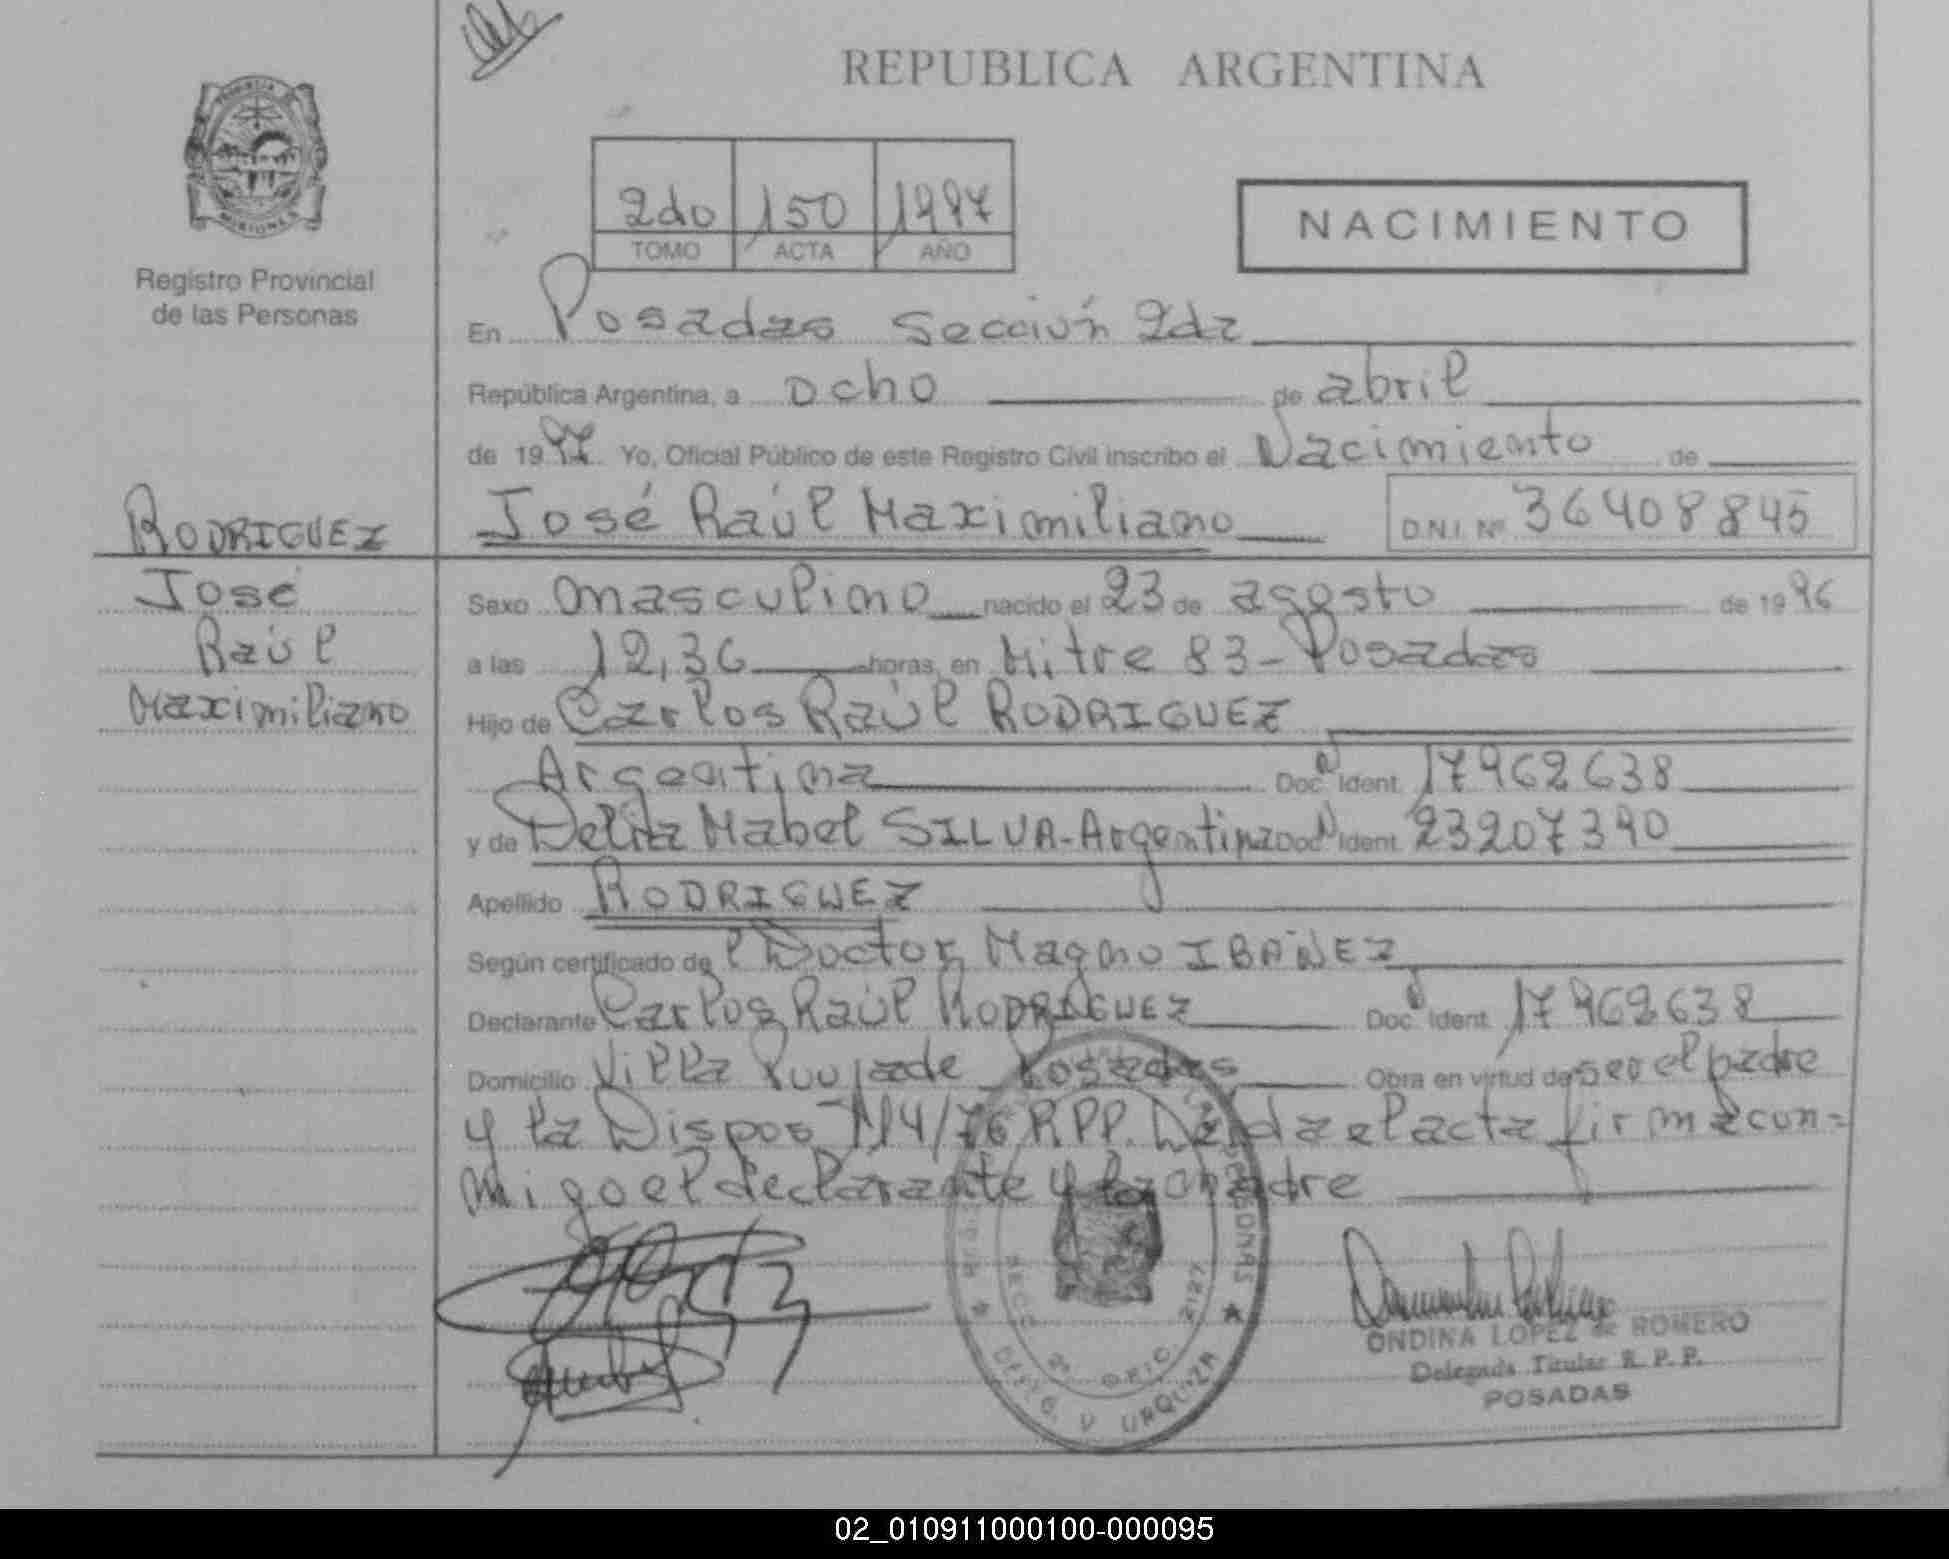 REPUBLICA ARGENTINA
PROVINCIA DE
MISIONES
Registro Provincial
de las Personas
2do 150 1997
TOMO ACTA AÑO
NACIMIENTO
En Posadas Sección 2da
República Argentina, a ocho de abril
de 1997 Yo, Oficial Público de este Registro Civil inscribo el Nacimiento de
RODRIGUEZ José Raúl Maximiliano D.N.I. Nº 36408845
José
Raúl
Maximiliano
Sexo masculino nacido el 23 de agosto de 1996
a las 12,36 horas, en Mitre 83 - Posadas
Hijo de Carlos Raúl RODRIGUEZ
Argentina Doc. Ident. 17962638
y de Delia Mabel SILVA - Argentina Doc. Ident. 23207390
Apellido RODRIGUEZ
Según certificado del Doctor Magno IBAÑEZ
Declarante Carlos Raúl RODRIGUEZ Doc. Ident. 17962638
Domicilio Villa Poujade Posadas Obra en virtud de ser el padre
y la Dispos 114/76 RPP. Leída el acta firma con=
migo el declarante y la madre
PERSONAS
SECC. 2ª. OFIC. 2127
DELEG. V. URQUIZA
ONDINA LOPEZ de ROMERO
Delegada Titular R. P. P.
POSADAS
02_010911000100-000095